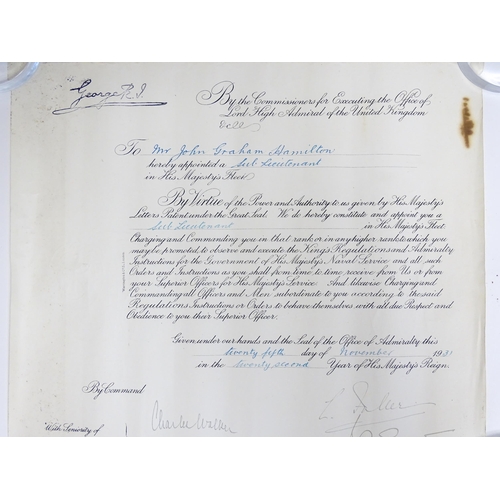 George R.I.
By the Commissioners for Executing the Office of
Lord High Admiral of the United Kingdom
&c &c
To Mr John Graham Hamilton
hereby appointed a Sub Lieutenant
in His Majesty's Fleet
By Virtue of the Power and Authority to us given by His Majesty's
Letters Patent under the Great Seal. We do hereby constitute and appoint you a
Sub Lieutenant in His Majesty's Fleet
Charging and Commanding you in that rank or in any higher rank to which you
may be promoted, to observe and execute the King's Regulations and Admiralty
Instructions for the Government of His Majesty's Naval Service and all such
Orders and Instructions as you shall from time to time receive from Us or from
your Superior Officers for His Majesty's Service. And likewise Charging and
Commanding all Officers and Men subordinate to you according to the said
Regulations Instructions or Orders to behave themselves with all due Respect and
Obedience to you their Superior Officer.
Given under our hands and the Seal of the Office of Admiralty this
twenty fifth day of November 1931
in the twenty second Year of His Majesty's Reign.
By Command
Charles Walker
With Seniority of